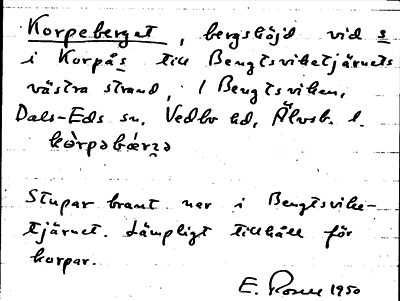 Korpeberget, bergshöjd vid s
i Korpås till Bengtsviketjärnets
västra strand, i Bengtsviken,
Dals-Eds sn, Vedbo hd, Älvsb. l.
kòrpəbǽrʒə
Stupar brant ner i Bengtsvike-
tjärnet. Lämpligt tillhåll för
korpar.
E. Rosell 1950